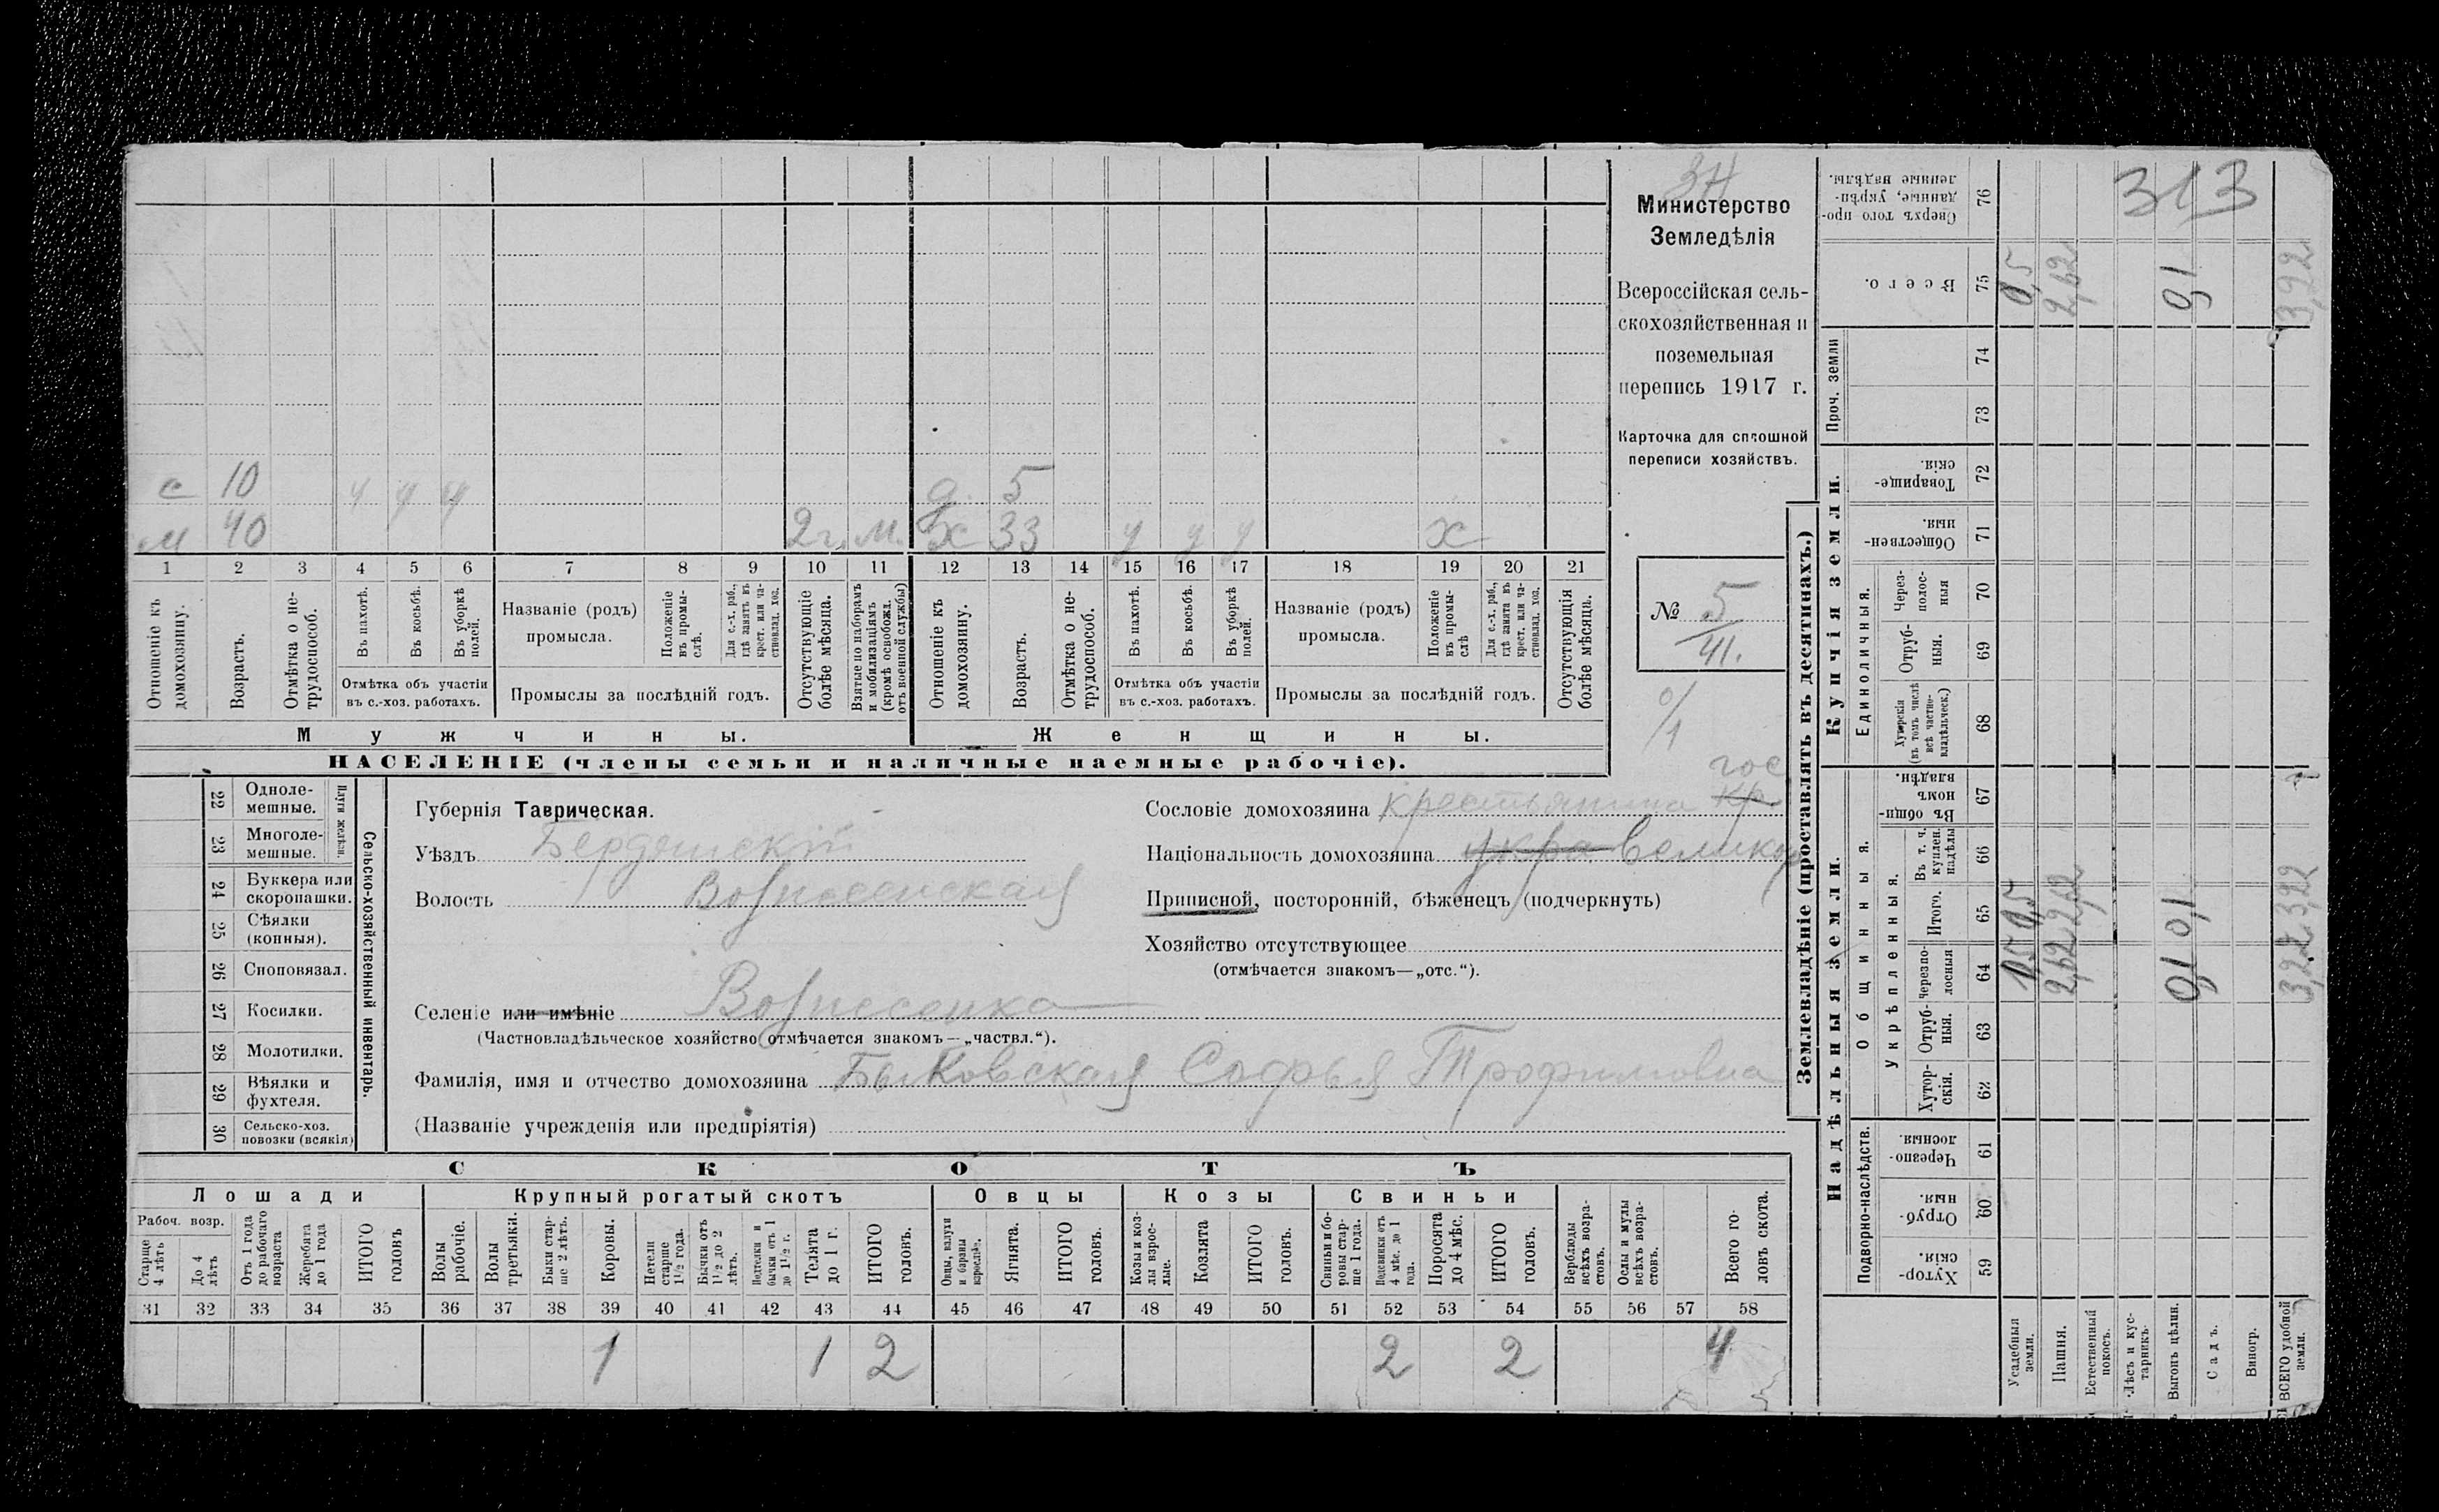 с 10 у у у д. 5
м 40 2 г. м. х 33 у у у х
1 2 3 4 5 6 7 8 9 10 11 12 13 14 15 16 17 18 19 20 21
Отношеніе къ домохозяину.
Возрастъ.
Отмѣтка о не-
трудоспособ.
Въ пахотѣ.
Въ косьбѣ.
Въ уборкѣ
полей.
Отмѣтка объ участіи
въ с.-хоз. работахъ.
Названіе (родъ)
промысла.
Положеніе
въ промы-
слѣ.
Для с.-х. раб.,
гдѣ занятъ въ
крест. или ча-
стновлад. хоз.
Промыслы за послѣдній годъ.
Отсутствующіе
болѣе мѣсяца.
Взятые по наборамъ
и мобилизаціямъ
(кромѣ освобожд.
отъ военной службы)
Отношеніе къ
домохозяину.
Возрастъ.
Отмѣтка о не-
трудоспособ.
Въ пахотѣ.
Въ косьбѣ.
Въ уборкѣ
полей.
Отмѣтка объ участіи
въ с.-хоз. работахъ.
Названіе (родъ)
промысла.
Положеніе
въ промы-
слѣ
Для с.-х. раб.,
гдѣ занята въ
крест. или ча-
стновлад. хоз.
Промыслы за послѣдній годъ.
Отсутствующія
болѣе мѣсяца.
Мужчины.
Женщины.
НАСЕЛЕНІЕ (члены семьи и наличные наемные рабочіе).
Министерство
Земледѣлія
Всероссійская сель-
скохозяйственная и
поземельная
перепись 1917 г.
Карточка для сплошной
переписи хозяйствъ.
№ 5
41.
0/1
22 Одноле-
мешные.
23 Многоле-
мешные.
Плуги желѣзн.
24 Буккера или
скоропашки.
25 Сѣялки
(конныя).
26 Сноповязал.
27 Косилки.
28 Молотилки.
29 Вѣялки и
фухтеля.
30 Сельско-хоз.
повозки (всякія)
Сельско-хозяйственный инвентарь.
Губернія Таврическая.
Уѣздъ Бердянскій
Волость Вознесенская
Селеніе или имѣніе Вознесенка
(Частновладѣльческое хозяйство отмѣчается знакомъ — „частвл.“).
Фамилія, имя и отчество домохозяина Быковская Софья Трофимовна
(Названіе учрежденія или предпріятія)
гос
Сословіе домохозяина крестьянина кр.
Національность домохозяина укра великор
Приписной, посторонній, бѣженецъ (подчеркнуть)
Хозяйство отсутствующее
(отмѣчается знакомъ—„отс.“).
СКОТЪ
Лошади Крупный рогатый скотъ Овцы Козы Свиньи
Рабоч. возр.
Старше
4 лѣтъ
До 4
лѣтъ
Отъ 1 года
до рабочаго
возраста
Жеребята
до 1 года
ИТОГО
головъ
Волы
рабочіе.
Волы
третьяки.
Быки стар-
ше 2 лѣтъ.
Коровы.
Нетели
старше
1½ года.
Бычки отъ
1½ до 2
лѣтъ.
Подтелки и
бычки отъ 1
до 1½ г.
Телята
до 1 г.
ИТОГО
головъ.
Овцы, валухи
и бараны
взрослые.
Ягнята.
ИТОГО
головъ.
Козы и коз-
лы взрос-
лые.
Козлята
ИТОГО
головъ.
Свиньи и бо-
ровы стар-
ше 1 года.
Подсвинки отъ
4 мѣс. до 1
года.
Поросята
до 4 мѣс.
ИТОГО
головъ.
Верблюды
всѣхъ возра-
стовъ.
Ослы и мулы
всѣхъ возра-
стовъ.
Всего го-
ловъ скота.
31 32 33 34 35 36 37 38 39 40 41 42 43 44 45 46 47 48 49 50 51 52 53 54 55 56 57 58
1 1 2 2 2 4
Землевладѣніе (проставлять въ десятинахъ.)
Надѣльныя земли.
Купчія земли.
Проч. земли
Общинныя.
Укрѣпленныя.
Подворно-наслѣдств.
Единоличныя.
Сверхъ того про-
данные, укрѣп-
ленные надѣлы.
76
Всего.
75
74
73
Товарище-
скія.
72
Обществен-
ныя.
71
Через-
полос-
ныя
70
Отруб-
ныя.
69
Хуторскія
(въ томъ числѣ
всѣ частно-
владѣльческ.)
68
Въ общи-
номъ
владѣн.
67
Въ т. ч.
куплен.
надѣлы
66
Итого.
65
Черезпо-
лосныя
64
Отруб-
ныя.
63
Хутор-
скія.
62
Черезпо-
лосныя.
61
Отруб-
ныя.
60
Хутор-
скія.
59
Усадебныя
земли.
Пашня.
Естественный
покосъ.
Лѣсъ и кус-
тарникъ.
Выгонъ цѣлин.
Садъ.
Виногр.
ВСЕГО удобной
земли.
313
0,5
2,62
0,1
0,5 0,5
2,62 2,62
0,1 0,1
3,22 3,22